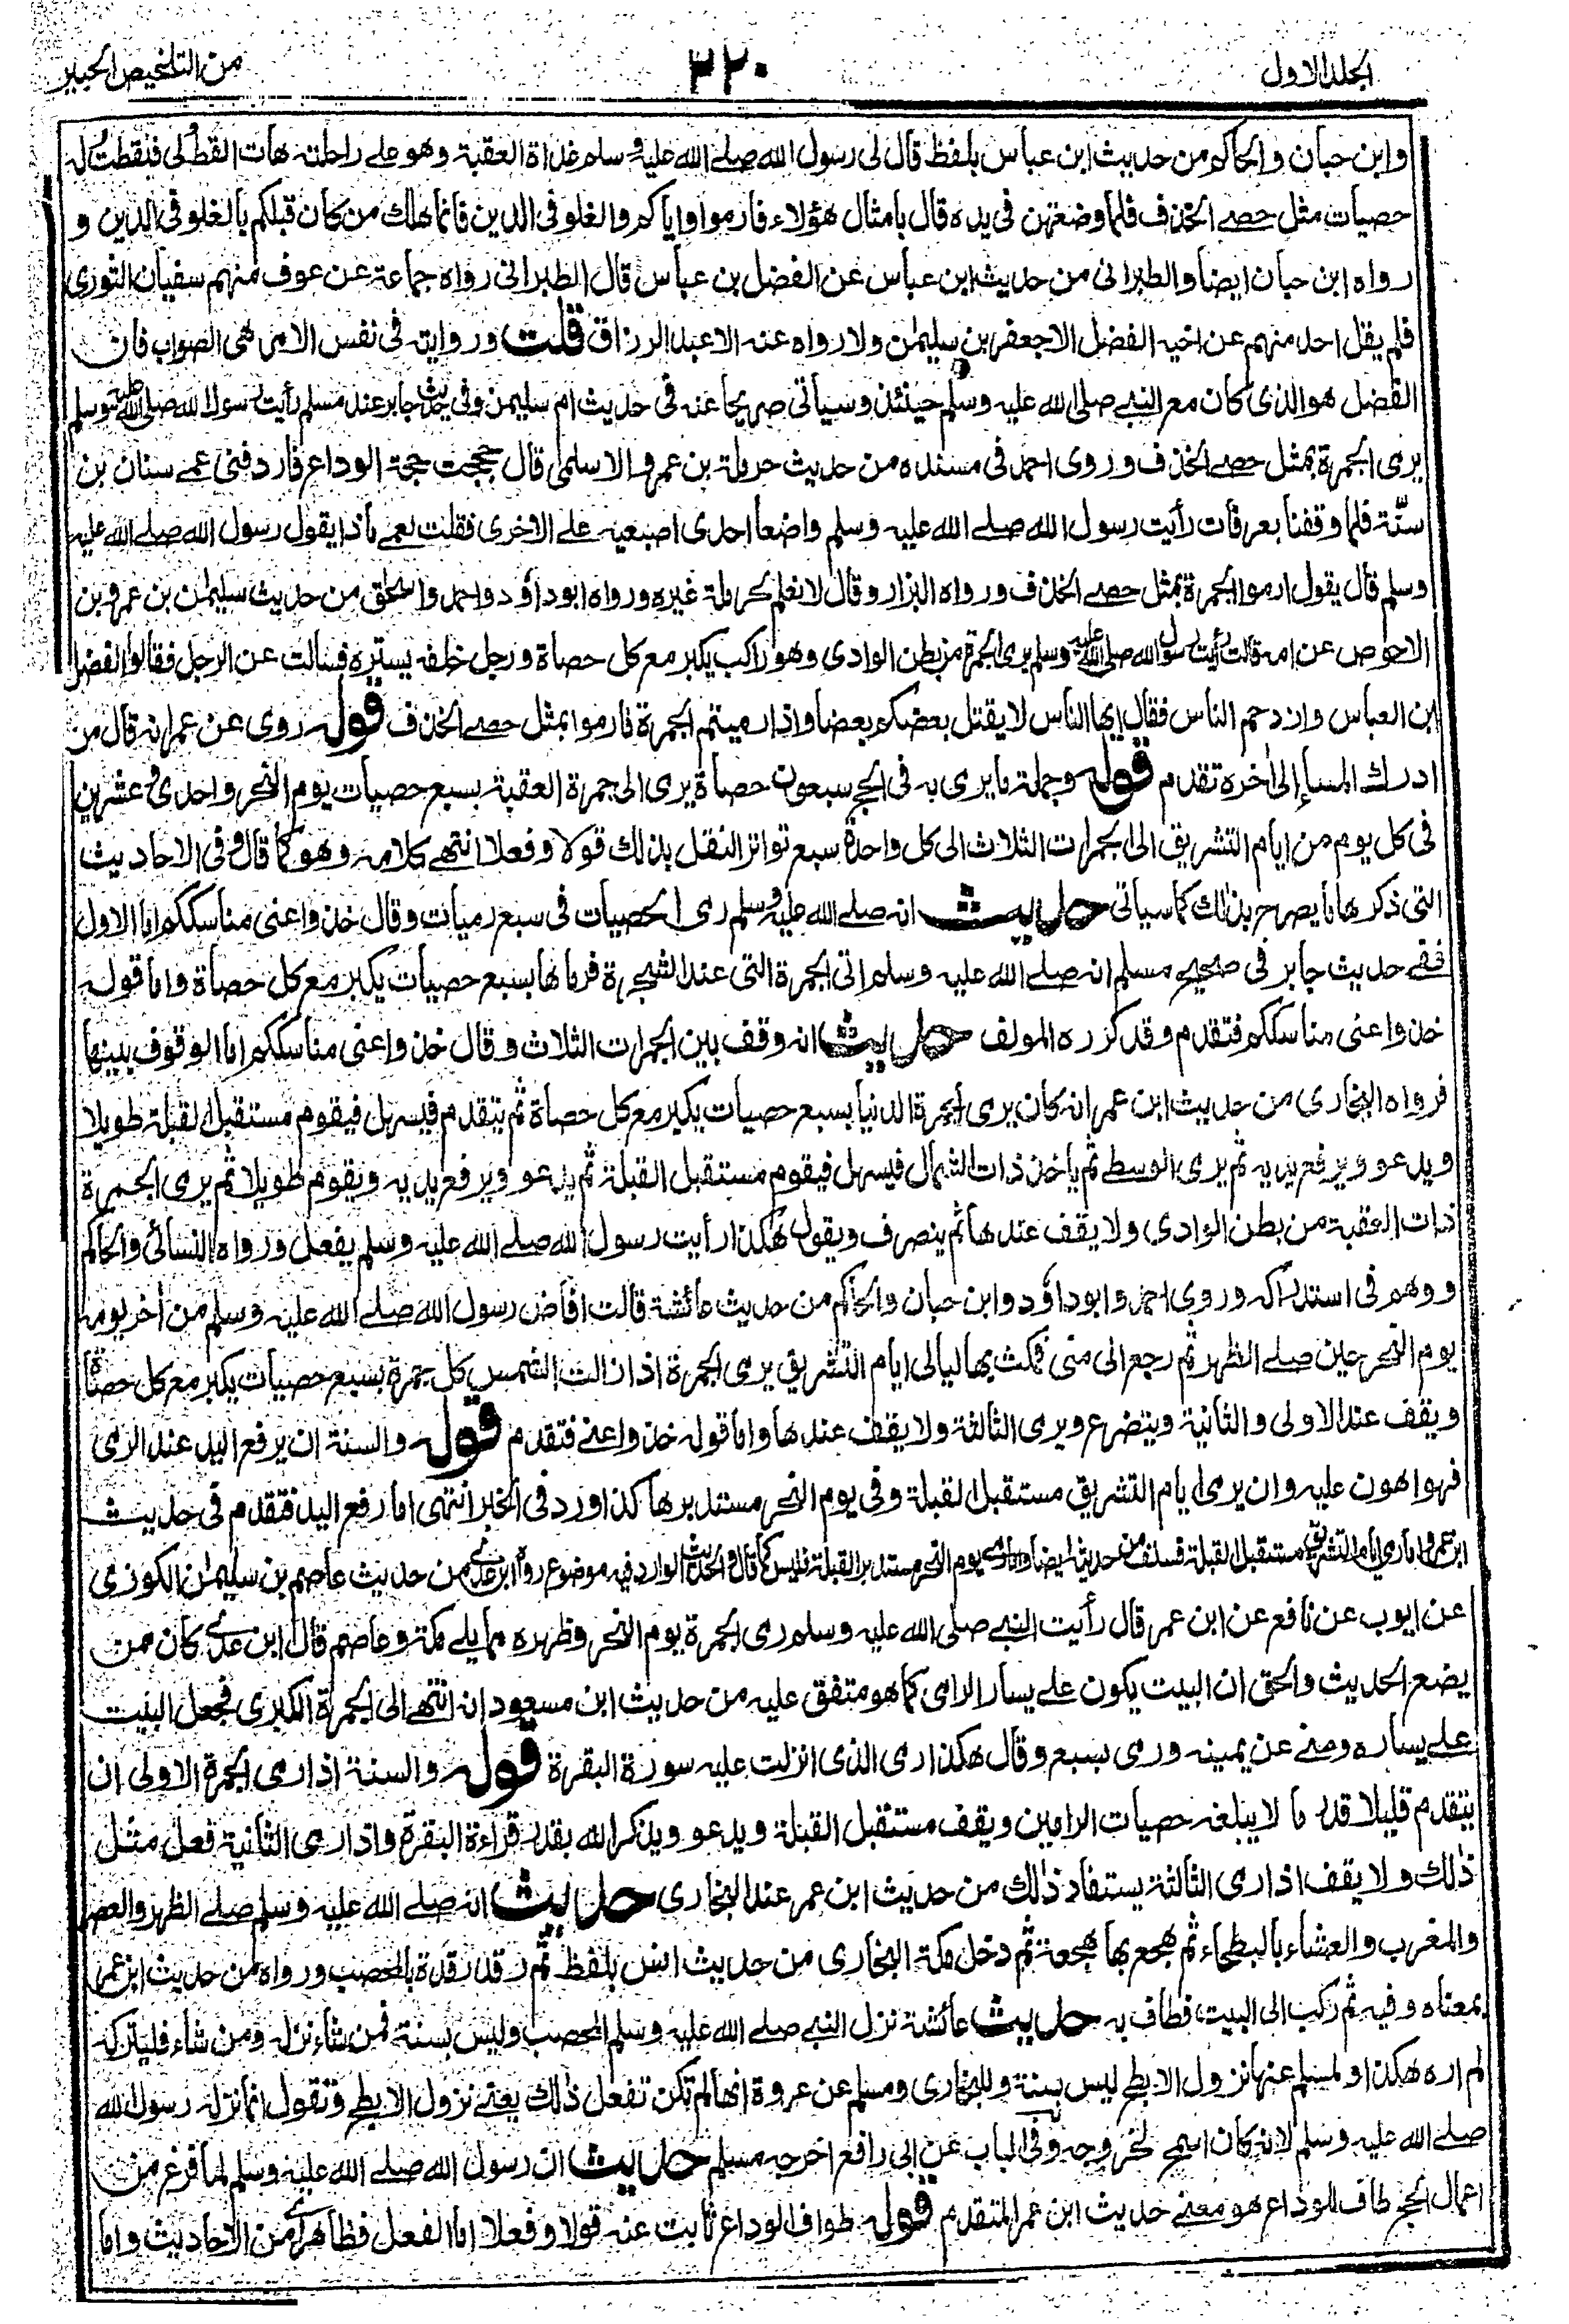 الجلد الاول
٢٢٠
من التلخيص الحبير
وابن حبان والحاكم من حديث ابن عباس بلفظ قال لى رسول الله صلى الله عليه وسلم غداة العقبة وهو على راحلته هات القط لى فلقطت له
حصيات مثل حصے الخذف فلما وضعتهن فى يده قال بامثال هؤلاء فارموا واياكم والغلو فى الدين فانما هلك من كان قبلكم بالغلو فى الدين و
رواه ابن حبان ايضا والطبرانى من حديث ابن عباس عن الفضل بن عباس قال الطبرانى رواه جماعة عن عوف منهم سفيان الثورى
فلم يقل احد منهم عن اخيه الفضل الا جعفر بن سليمٰن ولا رواه عنه الا عبد الرزاق قلت وروايته فى نفس الامر هى الصواب فان
الفضل هو الذى كان مع النبے صلى الله عليه وسلم حينئذ وسيأتى صريحا عنه فى حديث ام سليمن وفى حديث جابر عند مسلم رأيت رسول الله صلى الله عليه وسلم
يرمى الجمرة بمثل حصے الخذف وروى احمد فى مسنده من حديث حرملة بن عمرو الاسلمى قال حججت حجة الوداع فاردفنى عمے سنان بن
سنّة فلما وقفنا بعرفات رأيت رسول الله صلے الله عليه وسلم واضعا احدى اصبعيه علے الاخرى فقلت لعمے ماذا يقول رسول الله صلے الله عليه
وسلم قال يقول ارموا الجمرة بمثل حصے الخذف ورواه البزار وقال لا نعلم لحرملة غيره ورواه ابو داؤد واحمد واسحٰق من حديث سليمٰن بن عمرو بن
الاحوص عن امه قالت رأيت رسول الله صلى الله عليه وسلم يرمى الجمرة من بطن الوادى وهو راكب يكبر مع كل حصاة ورجل خلفه يستره فسالت عن الرجل فقالوا الفضل
ابن العباس وازدحم الناس فقال ايها الناس لا يقتل بعضكم بعضا واذا رميتم الجمرة فارموا بمثل حصے الخذف قوله روى عن عمر انه قال من
ادرك المساء الى اٰخره تقدم قوله وجملة ما يرمى به فى الحج سبعون حصاة يرمى الى جمرة العقبة بسبع حصيات يوم النحر واحدى وعشرين
فى كل يوم من ايام التشريق الى الجمرات الثلاث الى كل واحدة سبع تواتر النقل بذلك قولا وفعلا انتهے كلامه وهو كما قال وفى الاحاديث
التى ذكرها ما يصرح بذلك كما سيأتى حديث انه صلے الله عليه وسلم رمى الحصيات فى سبع رميات وقال خذوا عنى مناسككم اما الاول
ففے حديث جابر فى صحيح مسلم انه صلے الله عليه وسلم اتى الجمرة التى عند الشجرة فرماها بسبع حصيات يكبر مع كل حصاة واما قوله
خذوا عنى مناسككم فتقدم وقد كرره المولف حديث انه وقف بين الجمرات الثلاث وقال خذوا عنى مناسككم اما الوقوف بينها
فرواه البخارى من حديث ابن عمر انه كان يرمى الجمرة الدنيا بسبع حصيات يكبر مع كل حصاة ثم يتقدم فيسهل فيقوم مستقبل القبلة طويلا
ويدعو ويرفع يديه ثم يرمى الوسطے ثم ياخذ ذات الشمال فيسهل فيقوم مستقبل القبلة ثم يدعو ويرفع يديه ويقوم طويلا ثم يرمى الجمرة
ذات العقبة من بطن الوادى ولا يقف عندها ثم ينصرف ويقول هكذا رأيت رسول الله صلے الله عليه وسلم يفعل ورواه النسائى والحاكم
ووهم فى استدراكه وروى احمد وابو داؤد وابن حبان والحاكم من حديث عائشة قالت افاض رسول الله صلے الله عليه وسلم من اٰخر يومه
يوم النحر حين صلے الظهر ثم رجع الى منى فمكث بها ليالى ايام التشريق يرمى الجمرة اذا زالت الشمس كل جمرة بسبع حصيات يكبر مع كل حصاة
ويقف عند الاولى والثانية ويتضرع ويرمى الثالثة ولا يقف عندها واما قوله خذوا عنے فتقدم قوله والسنة ان يرفع اليد عند الرمى
فهو اهون عليه وان يرمى ايام التشريق مستقبل القبلة وفى يوم النحر مستدبرها كذا ورد فى الخبر انتهى اما رفع اليد فتقدم فى حديث
ابن عمر واما رمى ايام التشريق مستقبل القبلة فسلف من حديثه ايضا واما رمى يوم النحر مستدبر القبلة فليس كما قال والحديث الوارد فيه موضوع رواه ابن عدے من حديث عاصم بن سليمٰن الكوزى
عن ايوب عن نافع عن ابن عمر قال رأيت النبے صلى الله عليه وسلم رمى الجمرة يوم النحر وظهره مما يلے مكة وعاصم قال ابن عدے كان ممن
يضع الحديث والحق ان البيت يكون علے يسار الرامى كما هو متفق عليه من حديث ابن مسعود انه انتهے الى الجمرة الكبرى فجعل البيت
علے يساره ومنے عن يمينه ورمى بسبع وقال هكذا رمى الذى انزلت عليه سورة البقرة قوله والسنة اذا رمى الجمرة الاولى ان
يتقدم قليلا قدر ما لا يبلغه حصيات الرامين ويقف مستقبل القبلة ويدعو ويذكر الله بقدر قراءة البقرة واذا رمى الثانية فعل مثل
ذٰلك ولا يقف اذا رمى الثالثة يستفاد ذٰلك من حديث ابن عمر عند البخارى حديث انه صلے الله عليه وسلم صلے الظهر والعصر
والمغرب والعشاء بالبطحاء ثم هجع بها هجعة ثم دخل مكة البخارى من حديث انس بلفظ ثم رقد رقدة بالمحصب ورواه من حديث ابن عمر
بمعناه وفيه ثم ركب الى البيت فطاف به حديث عائشة نزل النبے صلے الله عليه وسلم المحصب وليس بسنة فمن شاء نزله ومن شاء فليتركه
لم اره هكذا ولمسلم عنها نزول الابطح ليس بسنة وللبخارى ومسلم عن عروة انها لم تكن تفعل ذٰلك يعنے نزول الابطح وتقول انما نزله رسول الله
صلے الله عليه وسلم لانه كان اسمح لخروجه وفى الباب عن ابى رافع اخرجه مسلم حديث ان رسول الله صلے الله عليه وسلم لما فرغ من
اعمال الحج طاف للوداع هو معنے حديث ابن عمر المتقدم قوله طواف الوداع ثابت عنه قولا وفعلا اما الفعل فظاهر من الاحاديث واما